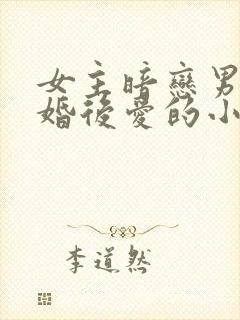 女主暗戀男
婚後愛的小
李道然